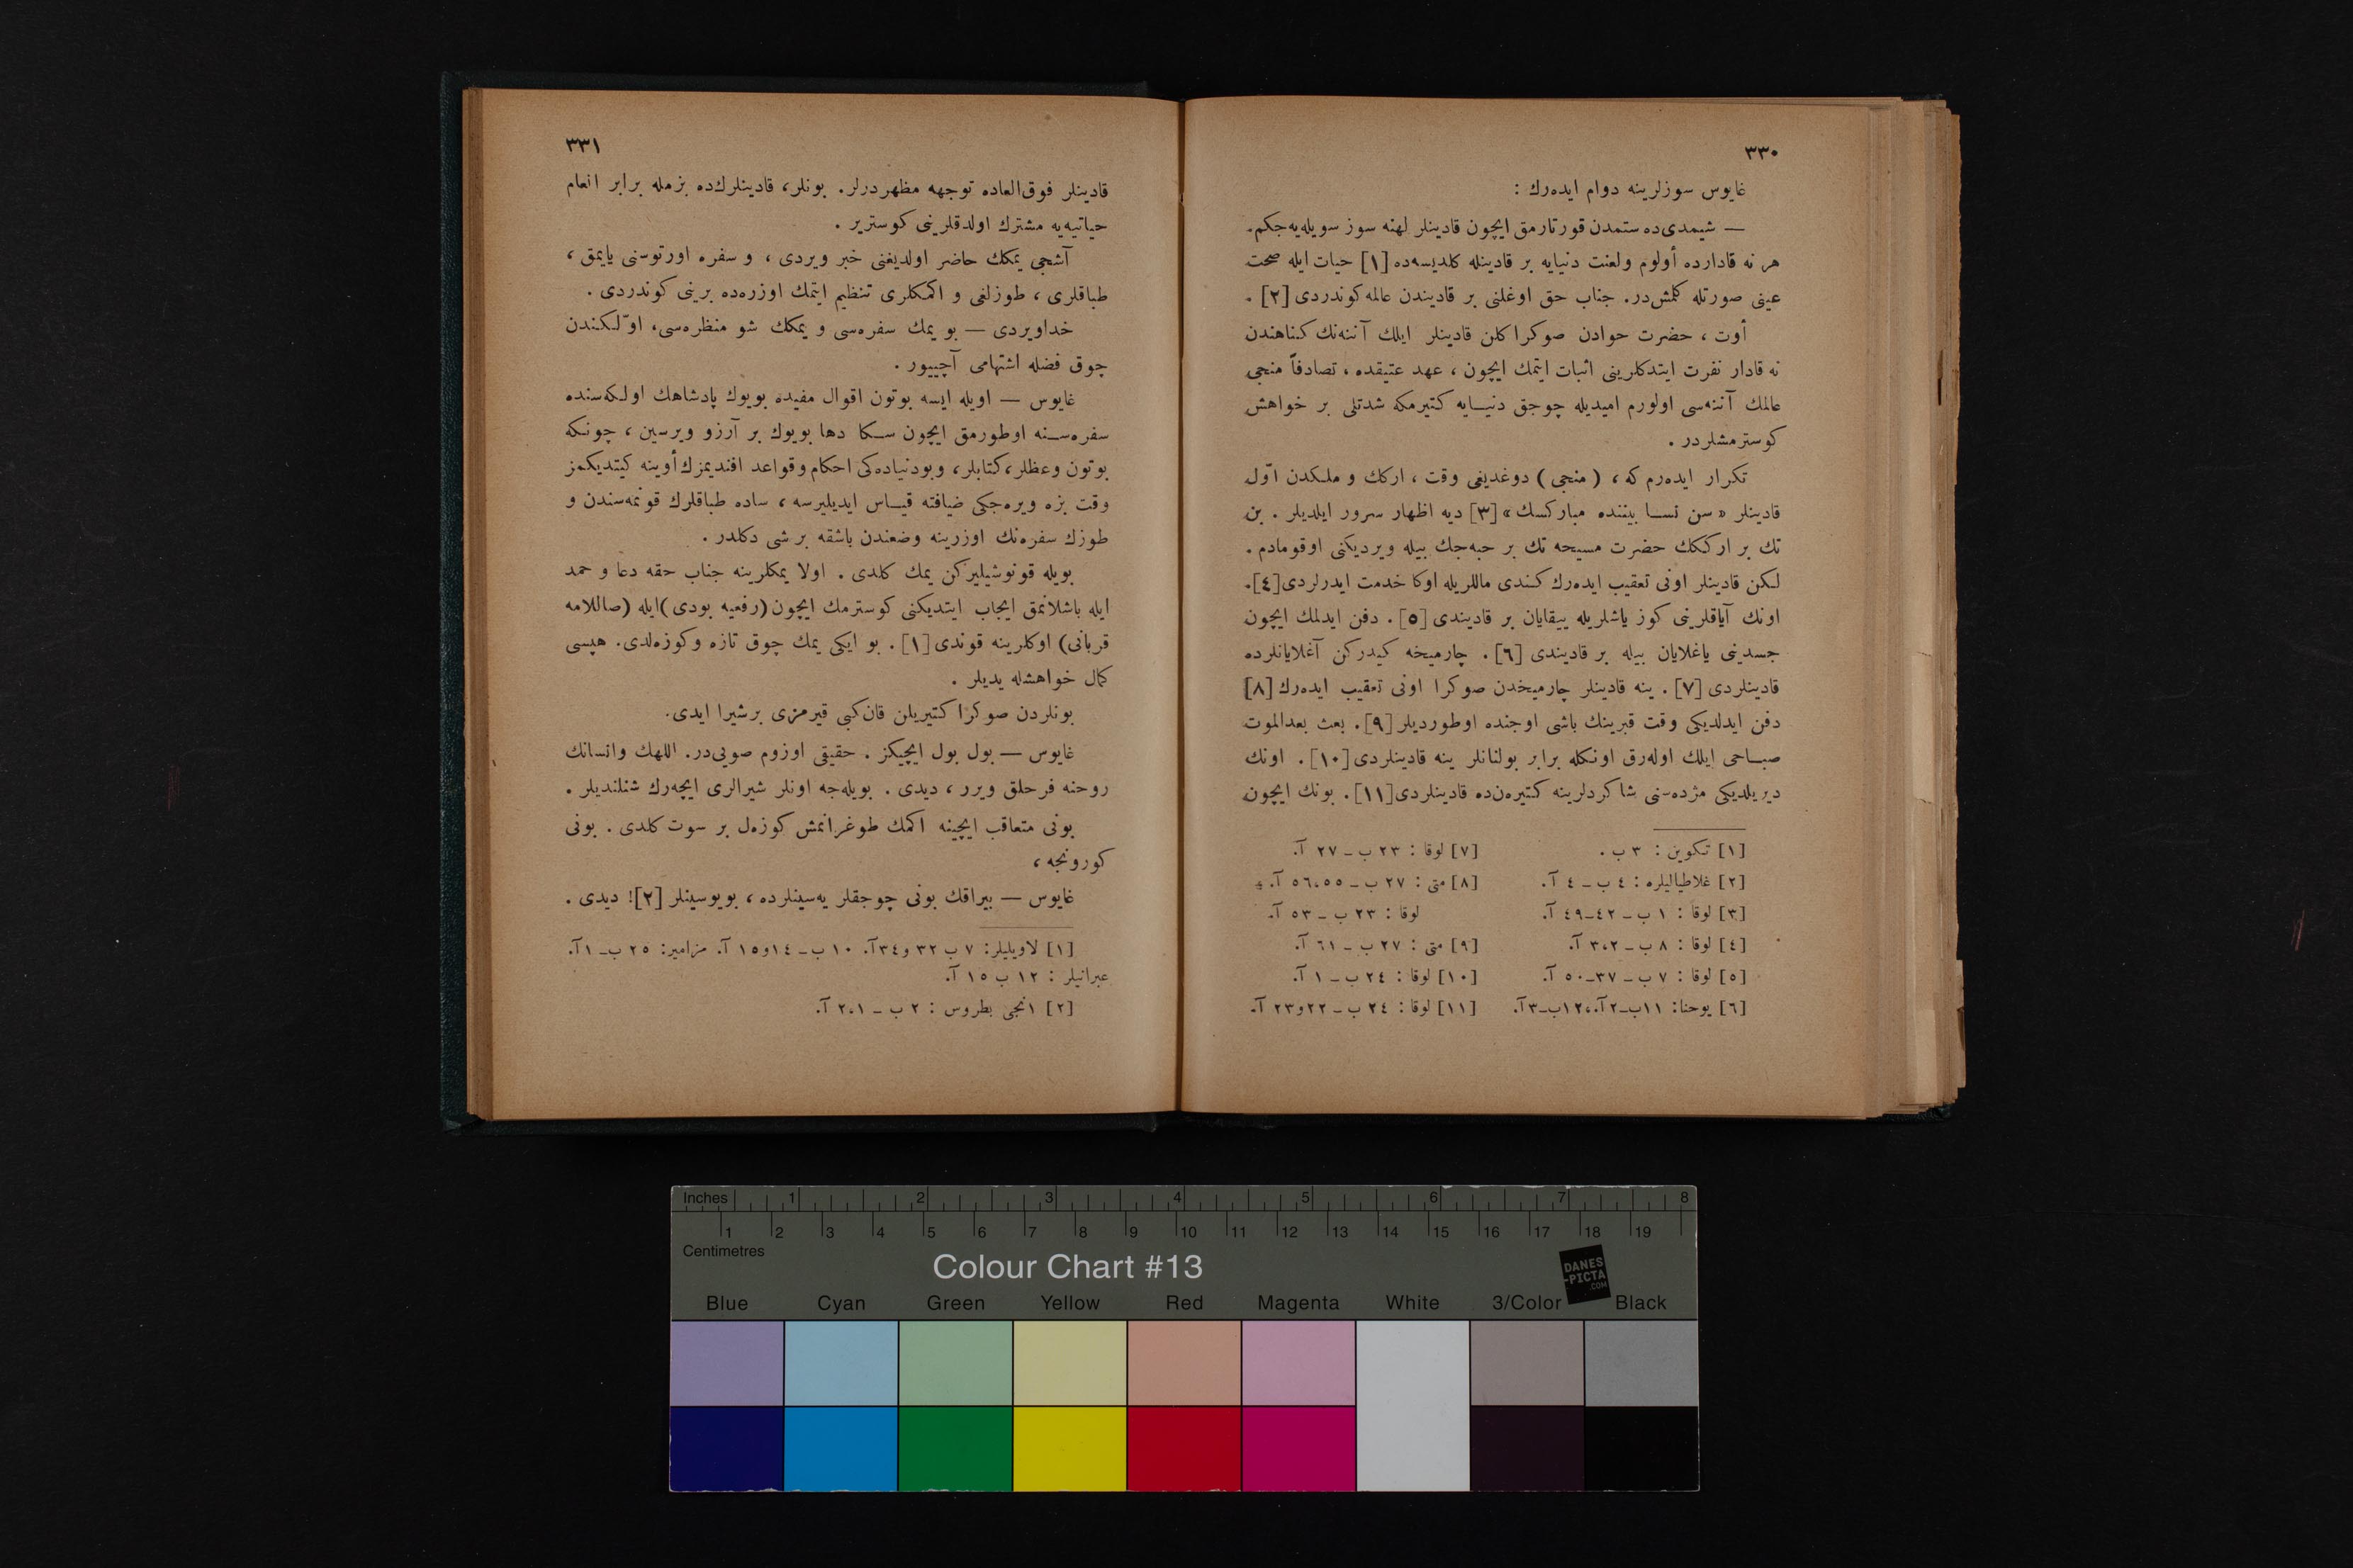 ٣٣٠
غايوس سوزلرينه دوام ايده‌رك :
— شيمدى‌ده ستمدن قورتارمق ايچون قادينلر لهنه سوز سويله‌يه‌جكم.
هر نه قادارده أولوم ولعنت دنيايه بر قادينله كلديسه‌ده [١] حيات ايله صحت
عينى صورتله كلمش‌در. جناب حق اوغلنى بر قاديندن عالمه كوندردى [٢] .
أوت ، حضرت حوادن صوكرا كلن قادينلر ايلك آننه‌نك كناهندن
نه قادار نفرت ايتدكلرينى اثبات ايتمك ايچون ، عهد عتيقده ، تصادفاً منجى
عالمك آننه‌سى اولورم اميديله چوجق دنيـايه كتيرمكه شدتلى بر خواهش
كوسترمشلردر .
تكرار ايده‌رم كه ، ( منجى ) دوغديغى وقت ، اركك و ملكدن اوّل
قادينلر « سن نسـا بيننده مباركسك » [٣] ديه اظهار سرور ايلديلر . بن
تك بر اركلك حضرت مسيحه تك بر حبه‌جك بيله ويرديكنى اوقومادم .
لكن قادينلر اونى تعقيب ايده‌رك كندى ماللريله اوكا خدمت ايدرلردى [٤].
اونك آياقلرينى كوز ياشلريله ييقايان بر قاديندى [٥] . دفن ايدلمك ايچون
جسدينى ياغلايان بيله بر قاديندى [٦] . چارميخه كيدركن آغلايانلرده
قادينلردى [٧] . ينه قادينلر چارميخدن صوكرا اونى تعقيب ايده‌رك [٨]
دفن ايدلديكى وقت قبرينك باشى اوجنده اوطورديلر [٩]. بعث بعدالموت
صبـاحى ايلك اوله‌رق اونكله برابر بولنانلر ينه قادينلردى [١٠] . اونك
ديريلديكى مژده‌سنى شاكردلرينه كتيره‌ن‌ده قادينلردى [١١]. بونك ايچون
[١] تكوين : ٣ ب .
[٢] غلاطياليلره : ٤ ب ـ ٤ آ.
[٣] لوقا : ١ ب ـ ٤٢ـ٤٩ آ.
[٤] لوقا : ٨ ب ـ ٣،٢ آ.
[٥] لوقا : ٧ ب ـ ٣٧ـ٥٠ آ.
[٦] يوحنا : ١١ب ـ٢آ.،١٢ب ـ٣آ.
[٧] لوقا : ٢٣ ب ـ ٢٧ آ.
[٨] متى : ٢٧ ب ـ ٥٦،٥٥ آ.
لوقا : ٢٣ ب ـ ٥٣ آ.
[٩] متى : ٢٧ ب ـ ٦١ آ.
[١٠] لوقا : ٢٤ ب ـ ١ آ.
[١١] لوقا : ٢٤ ب ـ ٢٢و٢٣ آ.
٣٣١
قادينلر فوق‌العاده توجهه مظهردرلر. بونلر، قادينلرك‌ده بزمله برابر انعام
حياتيه‌يه مشترك اولدقلرينى كوستريـر .
آشجى يمكك حاضر اولديغنى خبر ويردى ، و سفره اورتوسنى يايمق ،
طباقلرى ، طوزلغى و اكمكلرى تنظيم ايتمك اوزره‌ده برينى كوندردى .
خداويردى — بو يمك سفره‌سى و يمكك شو منظره‌سى، اوّلكندن
چوق فضله اشتهامى آچييور .
غايوس — اويله ايسه بوتون اقوال مفيده بويوك پادشاهك اولكه‌سنده
سفره‌سـنه اوطورمق ايچون سـكا دها بويوك بر آرزو ويرسين ، چونكه
بوتون وعظلر، كتابلر، وبودنياده‌كى احكام وقواعد افنديمزك أوينه كيتديكمز
وقت بزه ويره‌جكى ضيافته قيـاس ايديليرسه ، ساده طباقلرك قونمه‌سندن و
طوزك سفره‌نك اوزرينه وضعندن باشقه بر شى دكلدر .
بويله قونوشيليركن يمك كلدى . اولا يمكلرينه جناب حقه دعا و حمد
ايله باشلانمق ايجاب ايتديكنى كوسترمك ايچون (رفعيه بودى)ايله (صاللامه
قربانى) اوكلرينه قوندى [١] . بو ايكى يمك چوق تازه وكوزه‌لدى. هپسى
كمال خواهشله يديلر .
بونلردن صوكرا كتيريلن قان كبى قيرمزى برشيرا ايدى.
غايوس — بول بول ايچيكز . حقيقى اوزوم صويى‌در. اللهك وانسانك
روحنه فرحلق ويرر ، ديدى . بويله‌جه اونلر شيرالرى ايچه‌رك شنلنديلر .
بونى متعاقب ايچينه اكمك طوغرانمش كوزه‌ل بر سوت كلدى . بونى
كورونجه ،
غايوس — بيراقك بونى چوجقلر يه‌سينلرده ، بويوسينلر [٢]! ديدى .
[١] لاويليلر: ٧ ب ٣٢ و٣٤آ. ١٠ ب ـ ١٤و١٥ آ. مزامير: ٢٥ ب ـ ١آ.
عبرانيلر : ١٢ ب ١٥ آ.
[٢] ١نجى بطروس : ٢ ب ـ ٢،١ آ.
Inches 1 2 3 4 5 6 7 8
1 2 3 4 5 6 7 8 9 10 11 12 13 14 15 16 17 18 19
Centimetres
Colour Chart #13
DANES
-PICTA
.COM
Blue Cyan Green Yellow Red Magenta White 3/Color Black